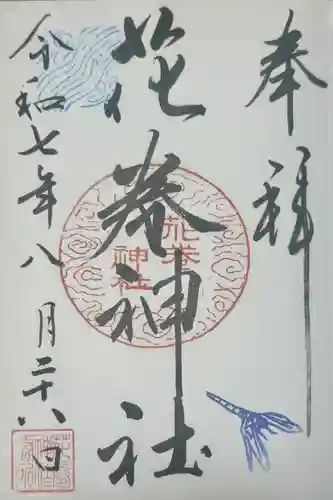 奉拝
花巻神社
花巻
神社
令和七年八月二十八日